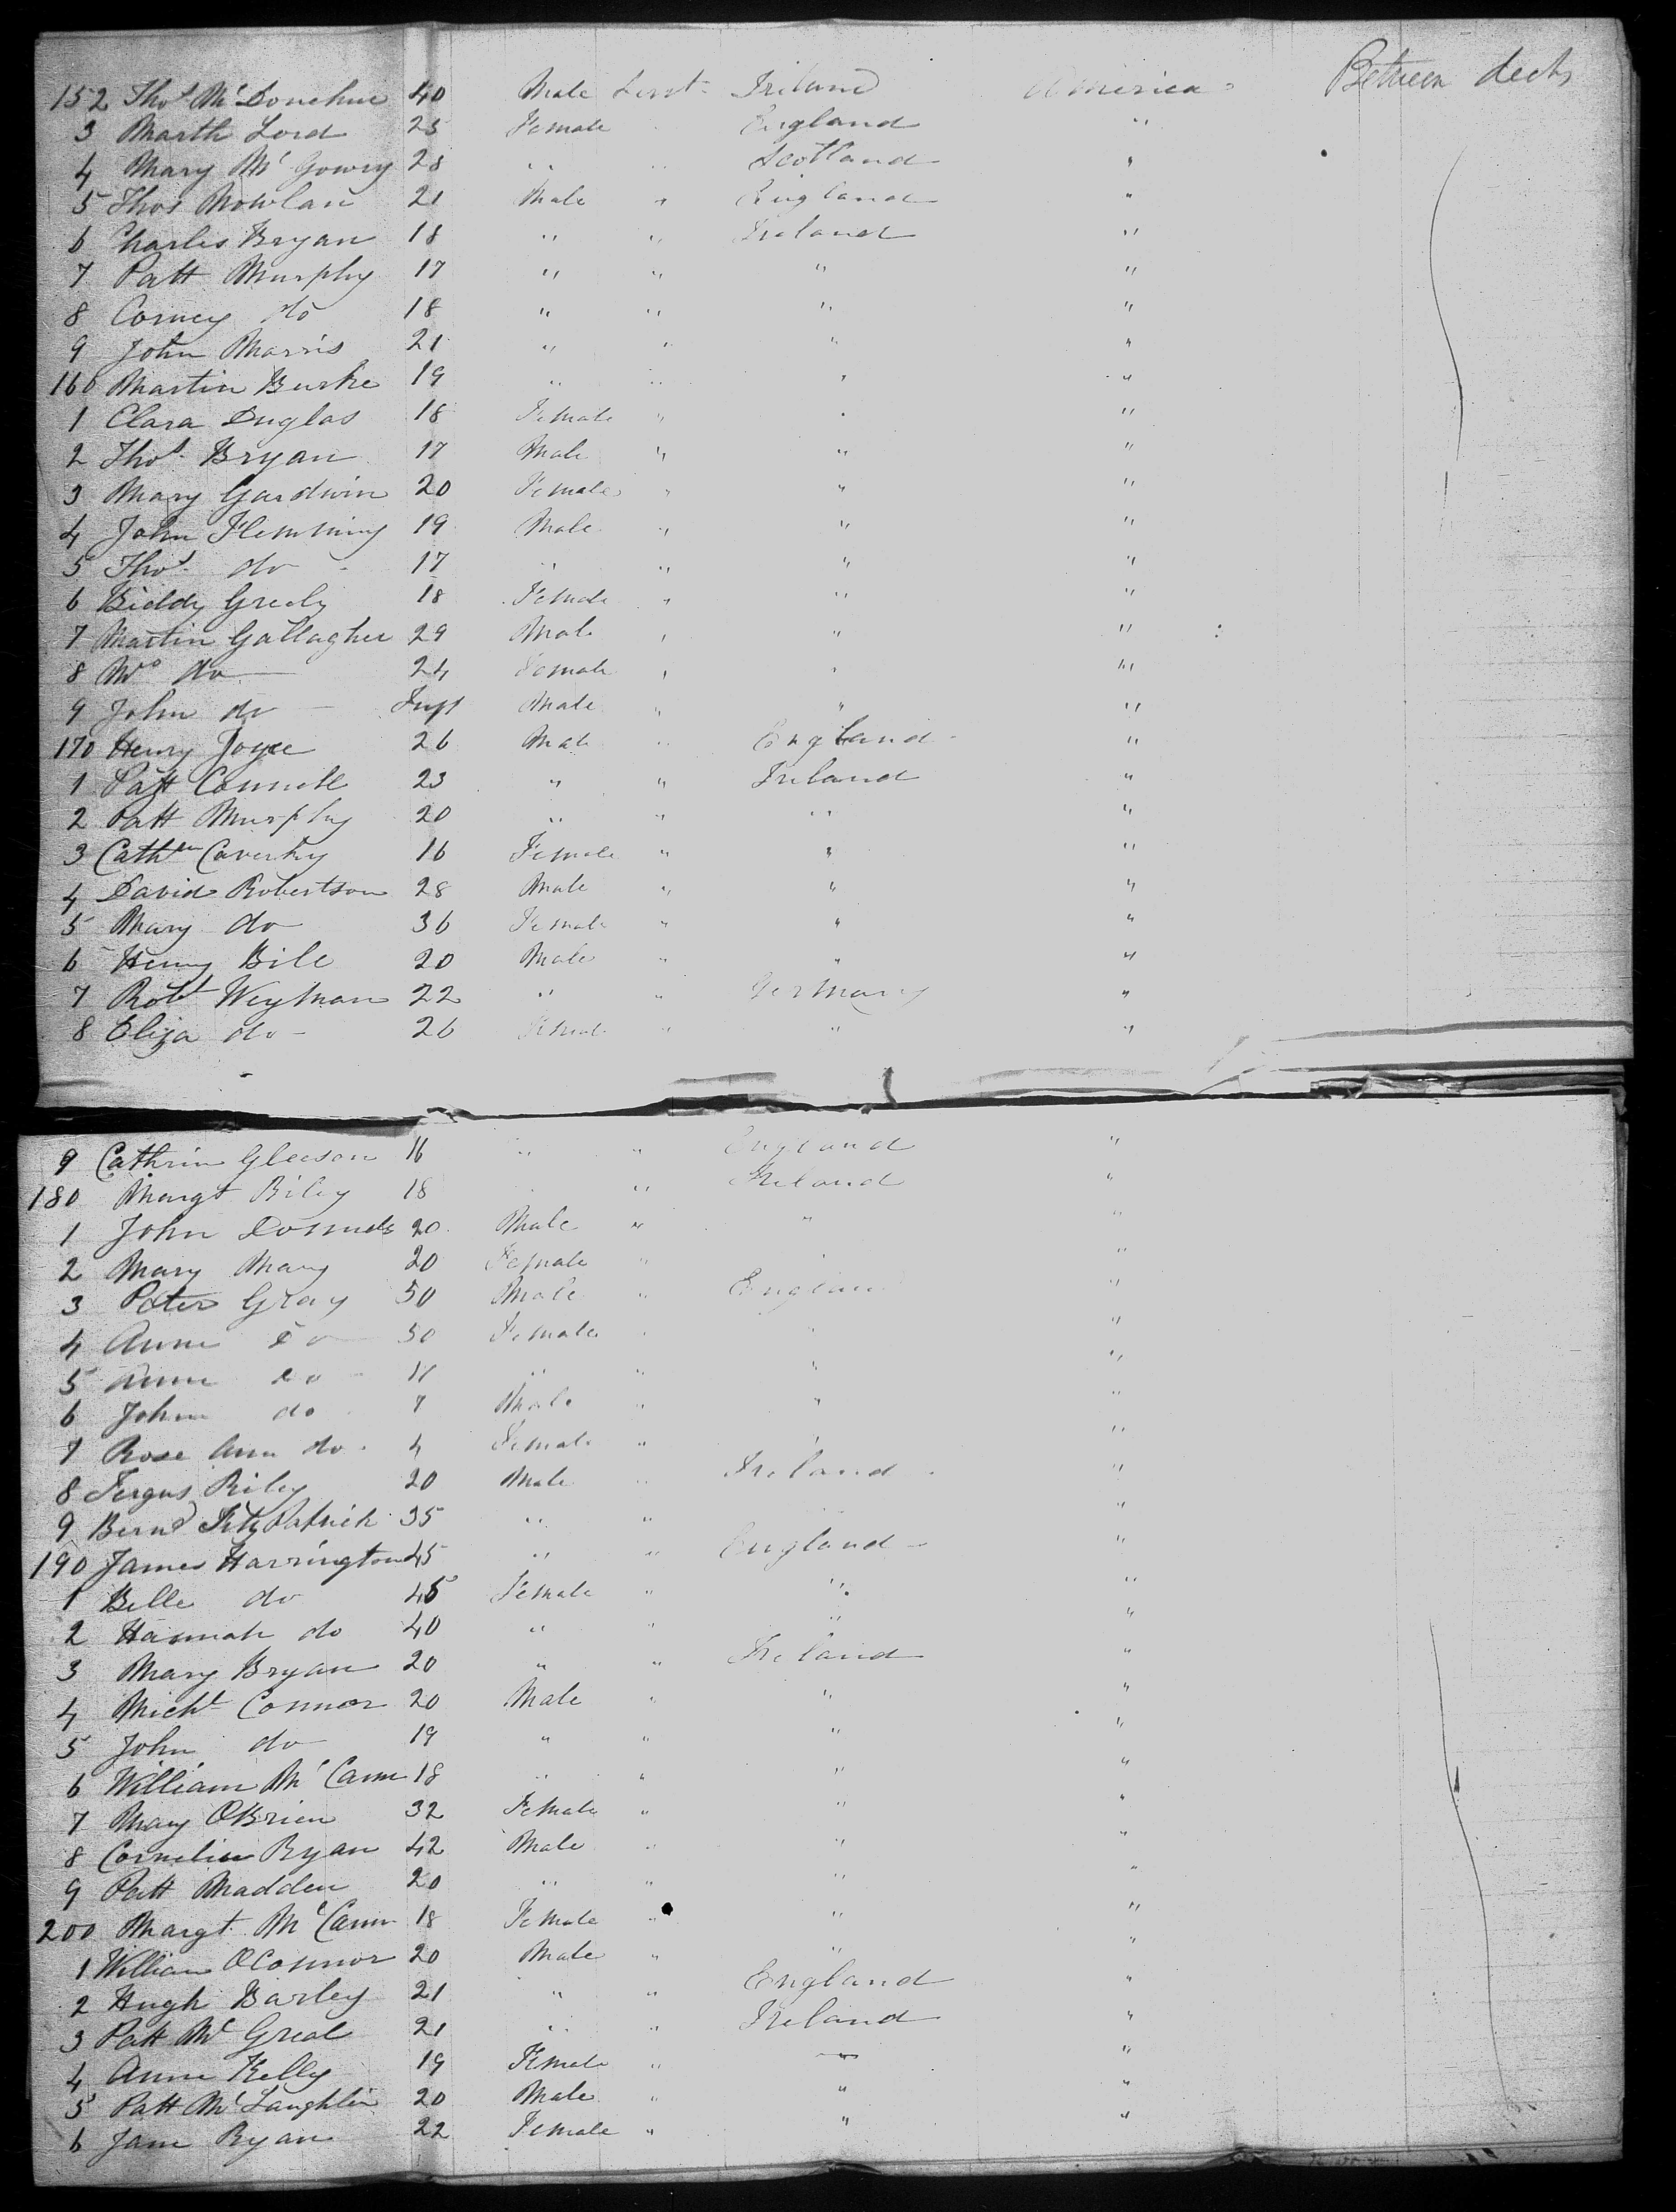 152 Thos McDonehue 40 Male Ireland America Between decks
3 Marth Lord 25 Female England "
4 Mary Mc Gowry 28 " " Scotland "
5 Thos Nowlan 21 Male " England "
6 Charles Bryan 18 " " Ireland "
7 Patt Murphy 17 " " " "
8 Corney do 18 " " " "
9 John Morris 21 " " " "
160 Martin Burke 19 " " " "
1 Clara Duglas 18 Female " " "
2 Thos Bryan 17 Male " " "
3 Mary Gardwin 20 Female " " "
4 John Flemming 19 Male " " "
5 Thos do - 17 " " " "
6 Biddy Greely 18 Female " " "
7 Martin Gallagher 29 Male " " "
8 do 24 Female " " "
9 John do - Inft Male " " "
170 Henry Joyce 26 Male " England "
1 Patt Connell 23 " " Ireland "
2 Patt Murphy 20 " " " "
3 Cathen Caverhy 16 Female " " "
4 David Robertson 28 Male " " "
5 Mary do 36 Female " " "
6 Henry Bile 20 Male " " "
7 Robt Weyman 22 " " Germany "
8 Eliza do - 26 Female " " "
9 Cathrin Gleeson 16 " " England "
180 Margt Riley 18 " " Ireland "
1 John 20 Male " " "
2 Mary Many 20 Female " " "
3 Peter Gray 50 Male " England "
4 Anne do 50 Female " " "
5 Anne do - 11 " " " "
6 John do 7 Male " " "
7 Rose Ann do 4 Female " " "
8 Fergus Riley 20 Male " Ireland "
9 Bernd FitzPatrick 35 " " " "
190 James Harrington 45 " " England "
1 Belle do 45 Female " " "
2 Hannah do 40 " " " "
3 Mary Bryan 20 " " Ireland "
4 Michl Connor 20 Male " " "
5 John do 19 " " " "
6 William McCann 18 " " " "
7 Mary OBrien 32 Female " " "
8 Cornelius Ryan 42 Male " " "
9 Patt Madden 20 " " " "
200 Margt McCann 18 Female " " "
1 William OConnor 20 Male " " "
2 Hugh Barley 21 " " England "
3 Patt Mc Greal 21 " " Ireland "
4 Anne Kelly 19 Female " " "
5 Patt McLaughlin 20 Male " " "
6 Jane Ryan 22 Female " " "